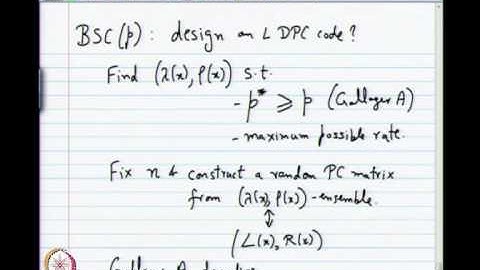 BSC(p): design an LDPC code?
Find (λ(x), ρ(x)) s.t.
- p* ⩾ p (Gallager A)
- maximum possible rate.
Fix n & construct a random PC matrix
from (λ(x), ρ(x)) - ensemble.
↕
(L(x), R(x))
Gallager A decoding